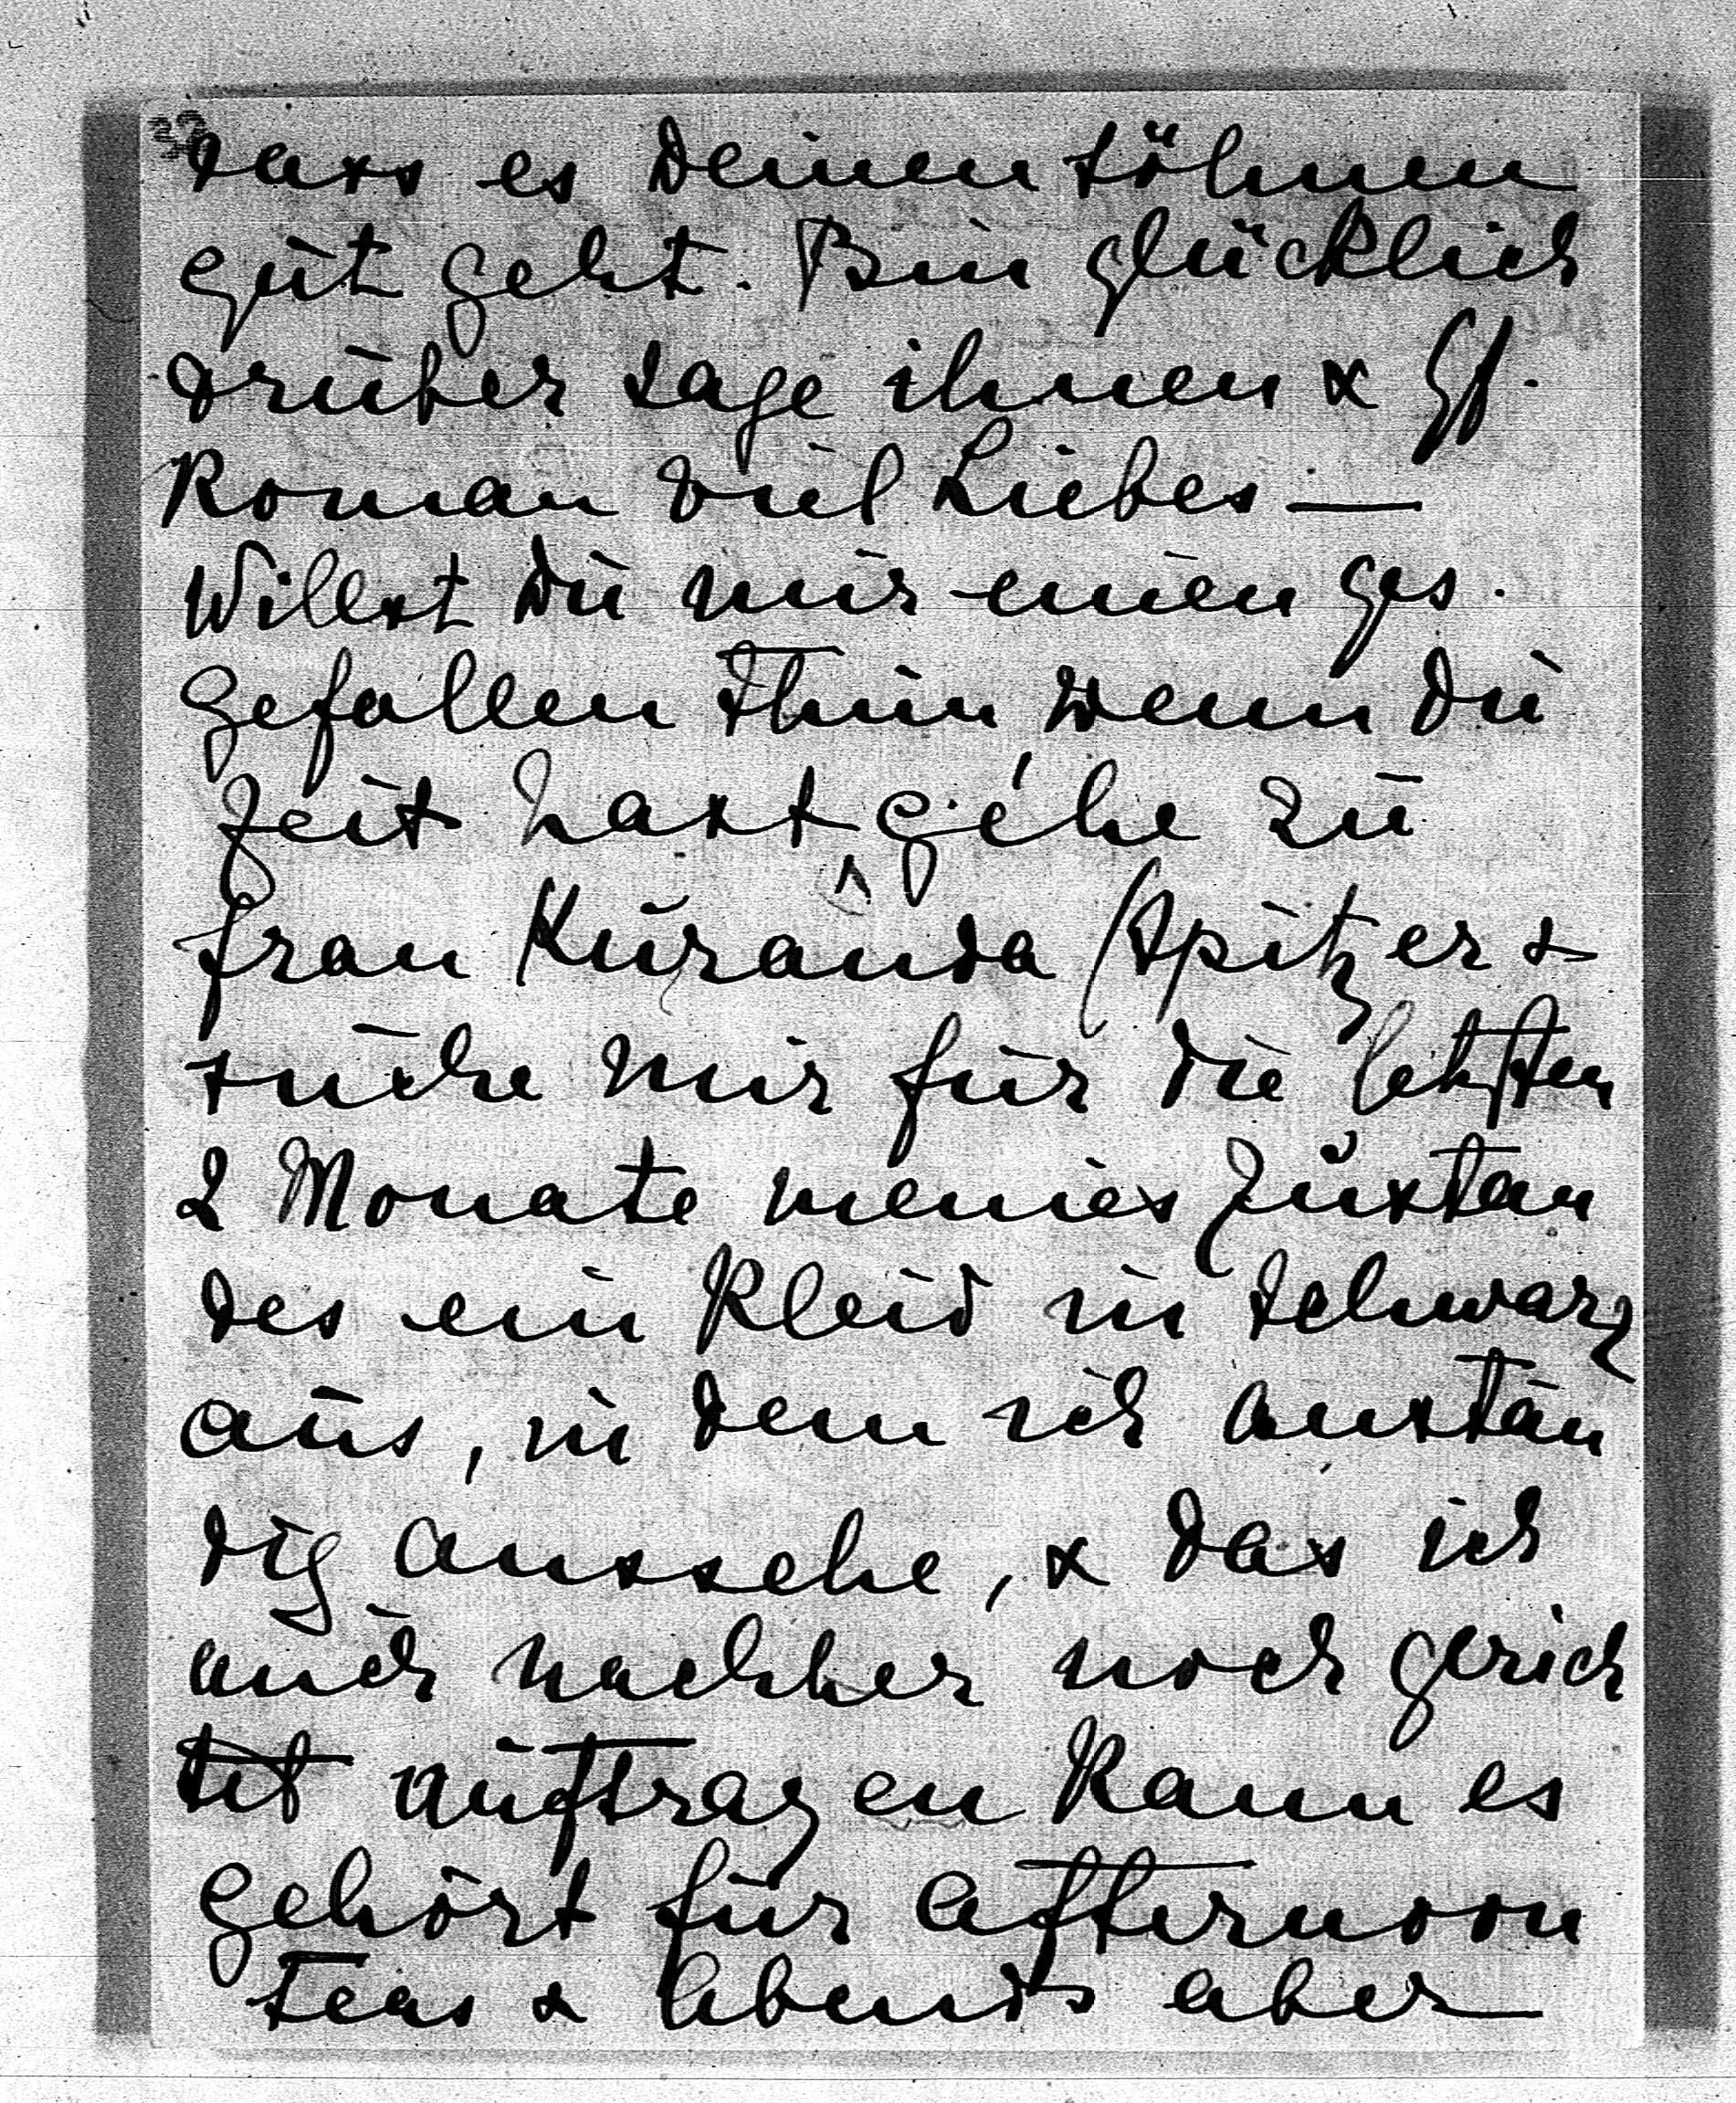 dass es Deinen Söhnen
gut geht. Bin glücklich
drüber sage ihnen & Gf.
Roman viel Liebes —
Willst Du mir einen ges.
Gefallen Thun wenn Du
Zeit hast gehe zu
Frau Kuranda (Spitzer &
suche mir für die letzten
2 Monate meines Zustan
des ein Kleid in Schwarz
aus, in dem ich anstän
dig aussehe, & das ich
auch nachher noch gerich
tet auftragen kann es
gehört für afternoon
Teas & Abends aber